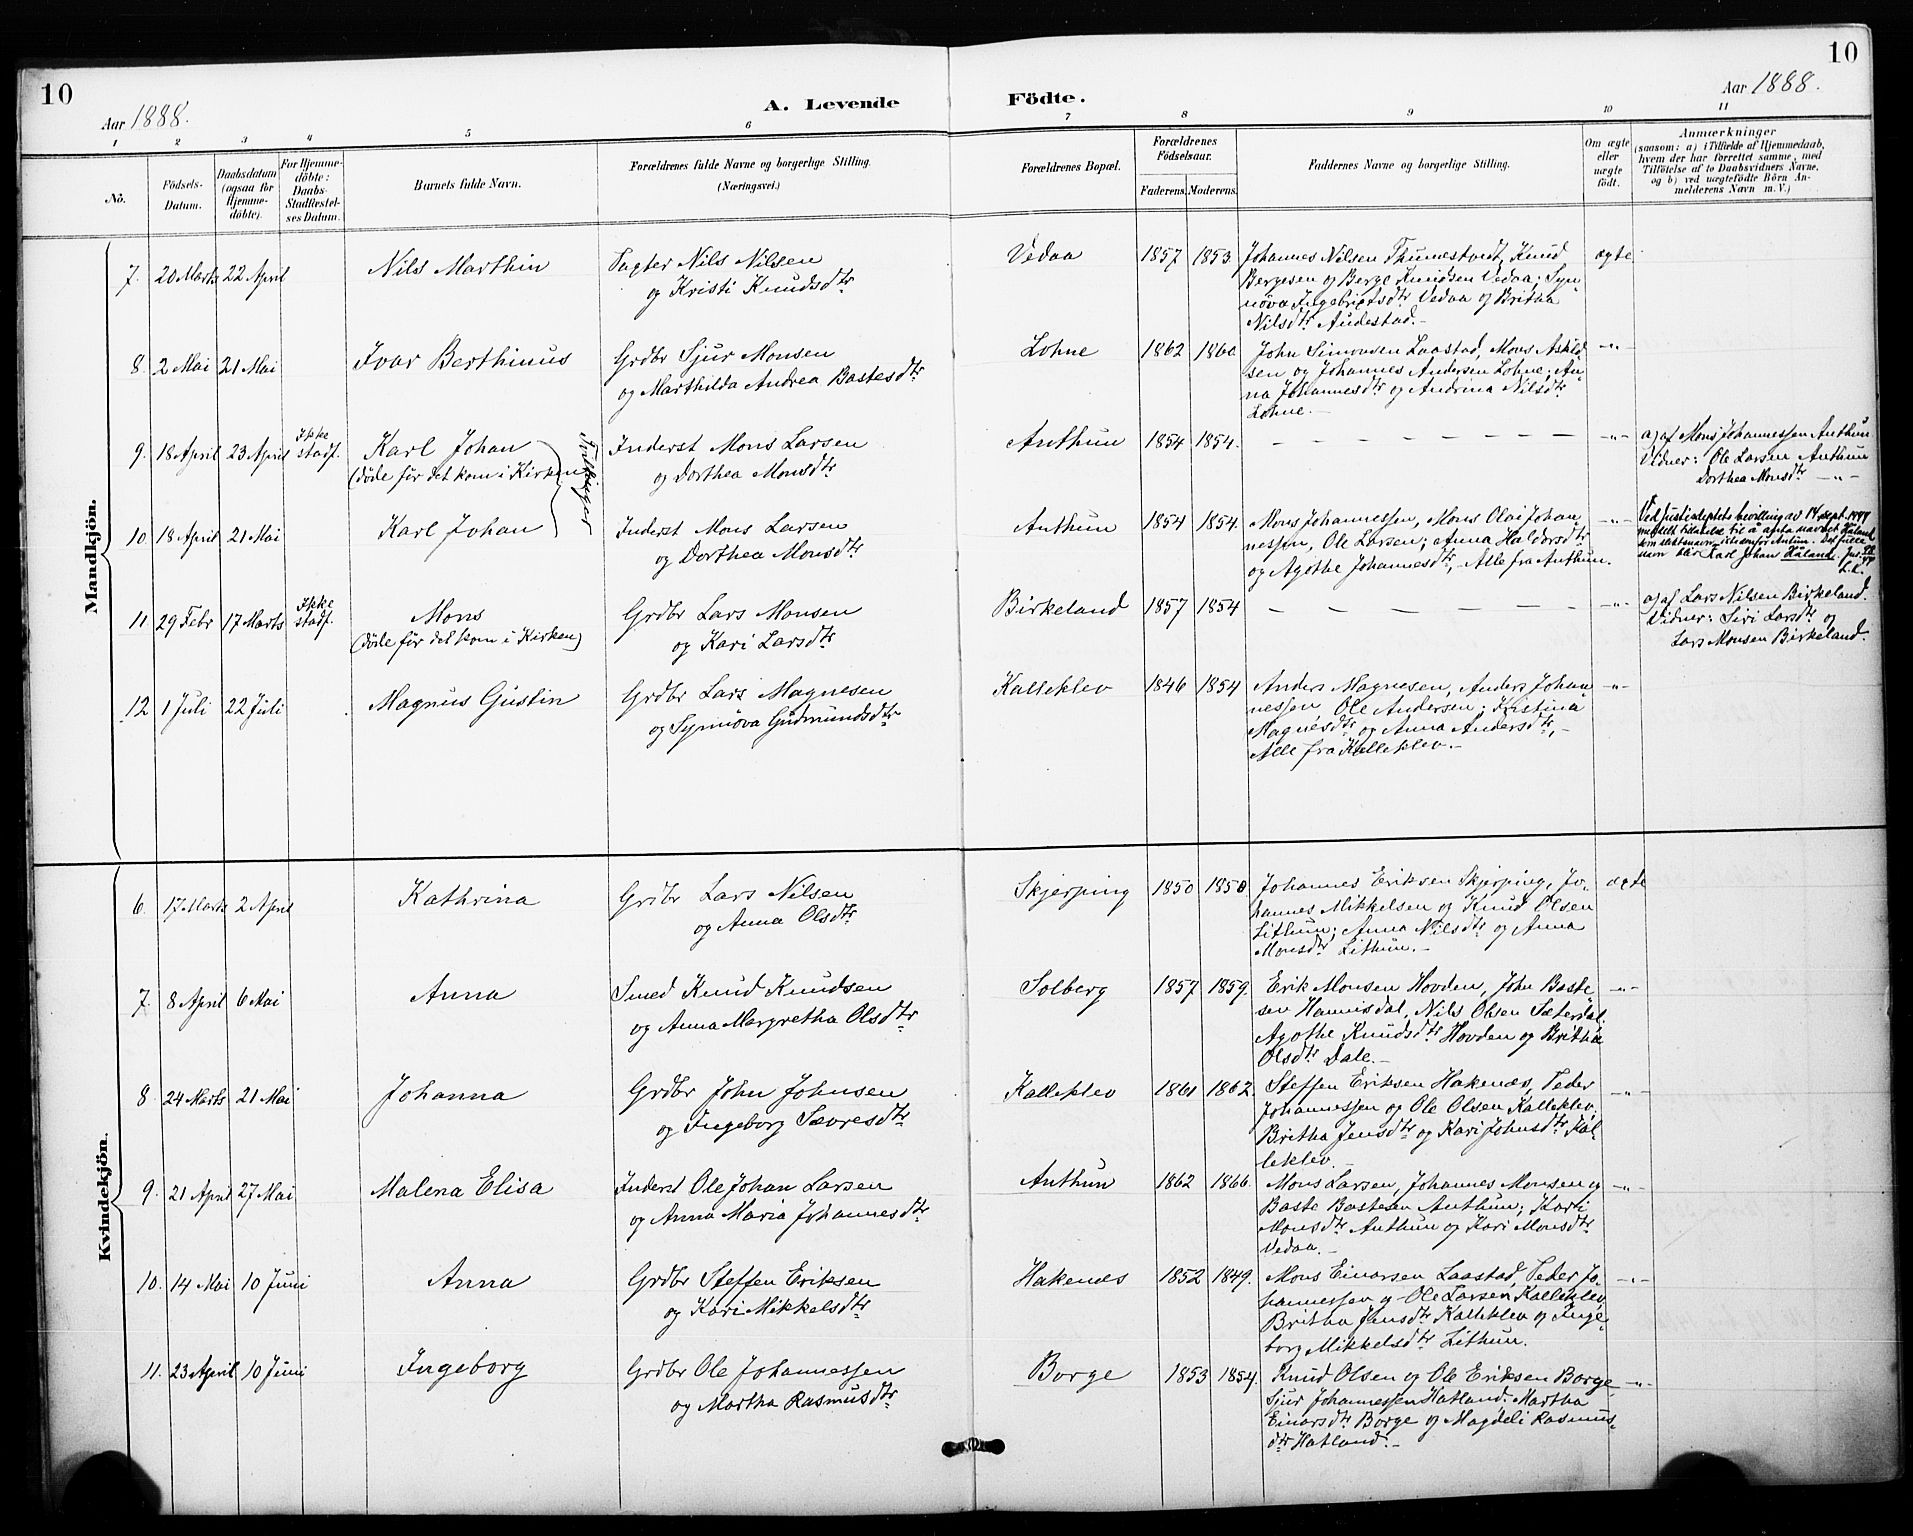 10
10
Aar 1888.
A. Levende Födte.
Aar 1888.
1 2 3 4 5 6 7 8 9 10 11
No.
Födsels-Datum.
Daabsdatum (ogsaa for Hjemme-döbte).
For Hjemme-döbte: Daabs-Stadfæstel-ses Datum.
Barnets fulde Navn.
Forældrenes fulde Navne og borgerlige Stilling.
(Næringsvei.)
Forældrenes Bopæl.
Forældrenes Födselsaar.
Faderens. Moderens.
Faddernes Navne og borgerlige Stilling.
Om ægte eller uægte födt.
Anmærkninger
(saasom: a) i Tilfælde af Hjemmedaab,
hvem der har forrettet samme, med
Tilföielse af to Daabsvidners Navne,
og b) ved uægtefödte Börn An-
melderens Navn m. V.)
Mandkjön.
7. 20 Marts 22 April Nils Marthin Nils Nilsen Vedaa 1857 1853 Johannes Nilsen Thunestvedt, Knud ægte
og Kristi Knudsdtr Bergesen og Berge Knudsen Vedaa; Syn-
növa Ingebrigtsdtr Vedaa og Britha
Nilsdtr Audestad.-
8. 2 Mai 21 Mai Ivar Berthinus Grdbr Sjur Monsen Lohne 1862 1860 John Simonsen Laastad, Mons Askild- -"-
og Marthilda Andrea Bastesdtr sen og Johannes Andersen Lohne; An-
na Johannesdtr og Andrina Nilsdtr
Lohne.-
9. 18 April 23 April Ikke stadf. Karl Johan Tvillinger Inderst Mons Larsen Anthun 1854 1854. - - - - - - - - -"- a) af Mons Johannessen Anthun.
(döde för det kom i Kirken) og Dorthea Monsdtr Vidner: Ole Larsen Anthun
Dorthea Monsdtr -"-
10 18 April 21 Mai Karl Johan Inderst Mons Larsen Anthun 1854 1854. Mons Johannessen, Mons Olai Johan- -"- Ved Justisdeptets bevilling av 14 sept.
og Dorthea Monsdtr nessen, Ole Larsen; Anna Haldorsdtr meddelt tillatelse til å anta navnet Håland
og Agothe Johannesdtr,- Alle fra Anthun. som slektsnavn istedenfor Antun. Det fulle
navn blir Karl Johan Håland.
11 29 Febr 17 Marts Ikke stadf. Mons Grdbr Lars Monsen Birkeland 1857 1854 - - - - - - - - -"- a) af Lars Nilsen Birkeland.
(döde för det kom i Kirken) og Kari Larsdtr Vidner: Siri Larsdtr og
Lars Monsen Birkeland.
12 1 Juli 22 Juli Magnus Gustin Grdbr Lars Magnesen Kalleklev 1846 1854 Anders Magnesen, Anders Johan- -"-
og Synnöva Gudmundsdtr nessen Ole Andersen; Kristina
Magnesdtr og Anna Andersdtr,-
Alle fra Kalleklev.-
Kvindekjön.
6. 17 Marts 2 April Kathrina Grdbr Lars Nilsen Skjerping 1850 1858 Johannes Eriksen Skjerping, Jo- ægte
og Anna Olsdtr hannes Mikkelsen og Knud Olsen
Lithun; Anna Nilsdtr og Anna
Monsdtr Lithun.-
7. 8 April 6 Mai Anna Smed Knud Knudsen Solberg 1857 1859. Erik Monsen Hovden, John Baste- -"-
og Anna Margretha Olsdtr sen Hannisdal, Nils Olsen Sæterdal.
Agothe Knudsdtr Hovden og Britha
Olsdtr Dale.-
8 24 Marts 21 Mai Johanna Grdbr John Johnsen Kalleklev 1861 1862. Steffen Eriksen Hakenæs, Peder -"-
og Ingeborg Sævresdtr Johannessen og Ole Olsen Kalleklev;
Britha Jensdtr og Kari Johnsdtr Kal-
leklev.-
9. 21 April 27 Mai Malena Elisa Inderst Ole Johan Larsen Anthun 1862 1866. Mons Larsen, Johannes Monsen og -"-
og Anna Maria Johannesdtr Baste Bastesen Anthun; Kari
Monsdtr Anthun og Kari Monsdtr
Vedaa.-
10. 14 Mai 10 Juni Anna Grdbr Steffen Eriksen Hakenæs 1852 1849. Mons Einarsen Laastad, Peder Jo- -"-
og Kari Mikkelsdtr hannessen og Ole Larsen Kalleklev
Britha Jensdtr Kalleklev og Inge-
borg Mikkelsdtr Lithun.
11. 23 April 10 Juni Ingeborg Grdbr Ole Johannessen Borge 1853 1854. Knud Olsen og Ole Eriksen Borge -"-
og Martha Rasmusdtr Sjur Johannessen Hatland. Martha
Einarsdtr Borge og Magdeli Rasmus-
dtr Hatland.-